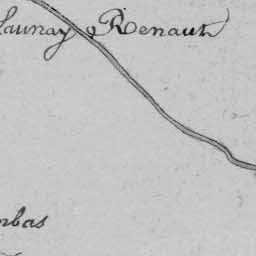 launay Renault
mbas